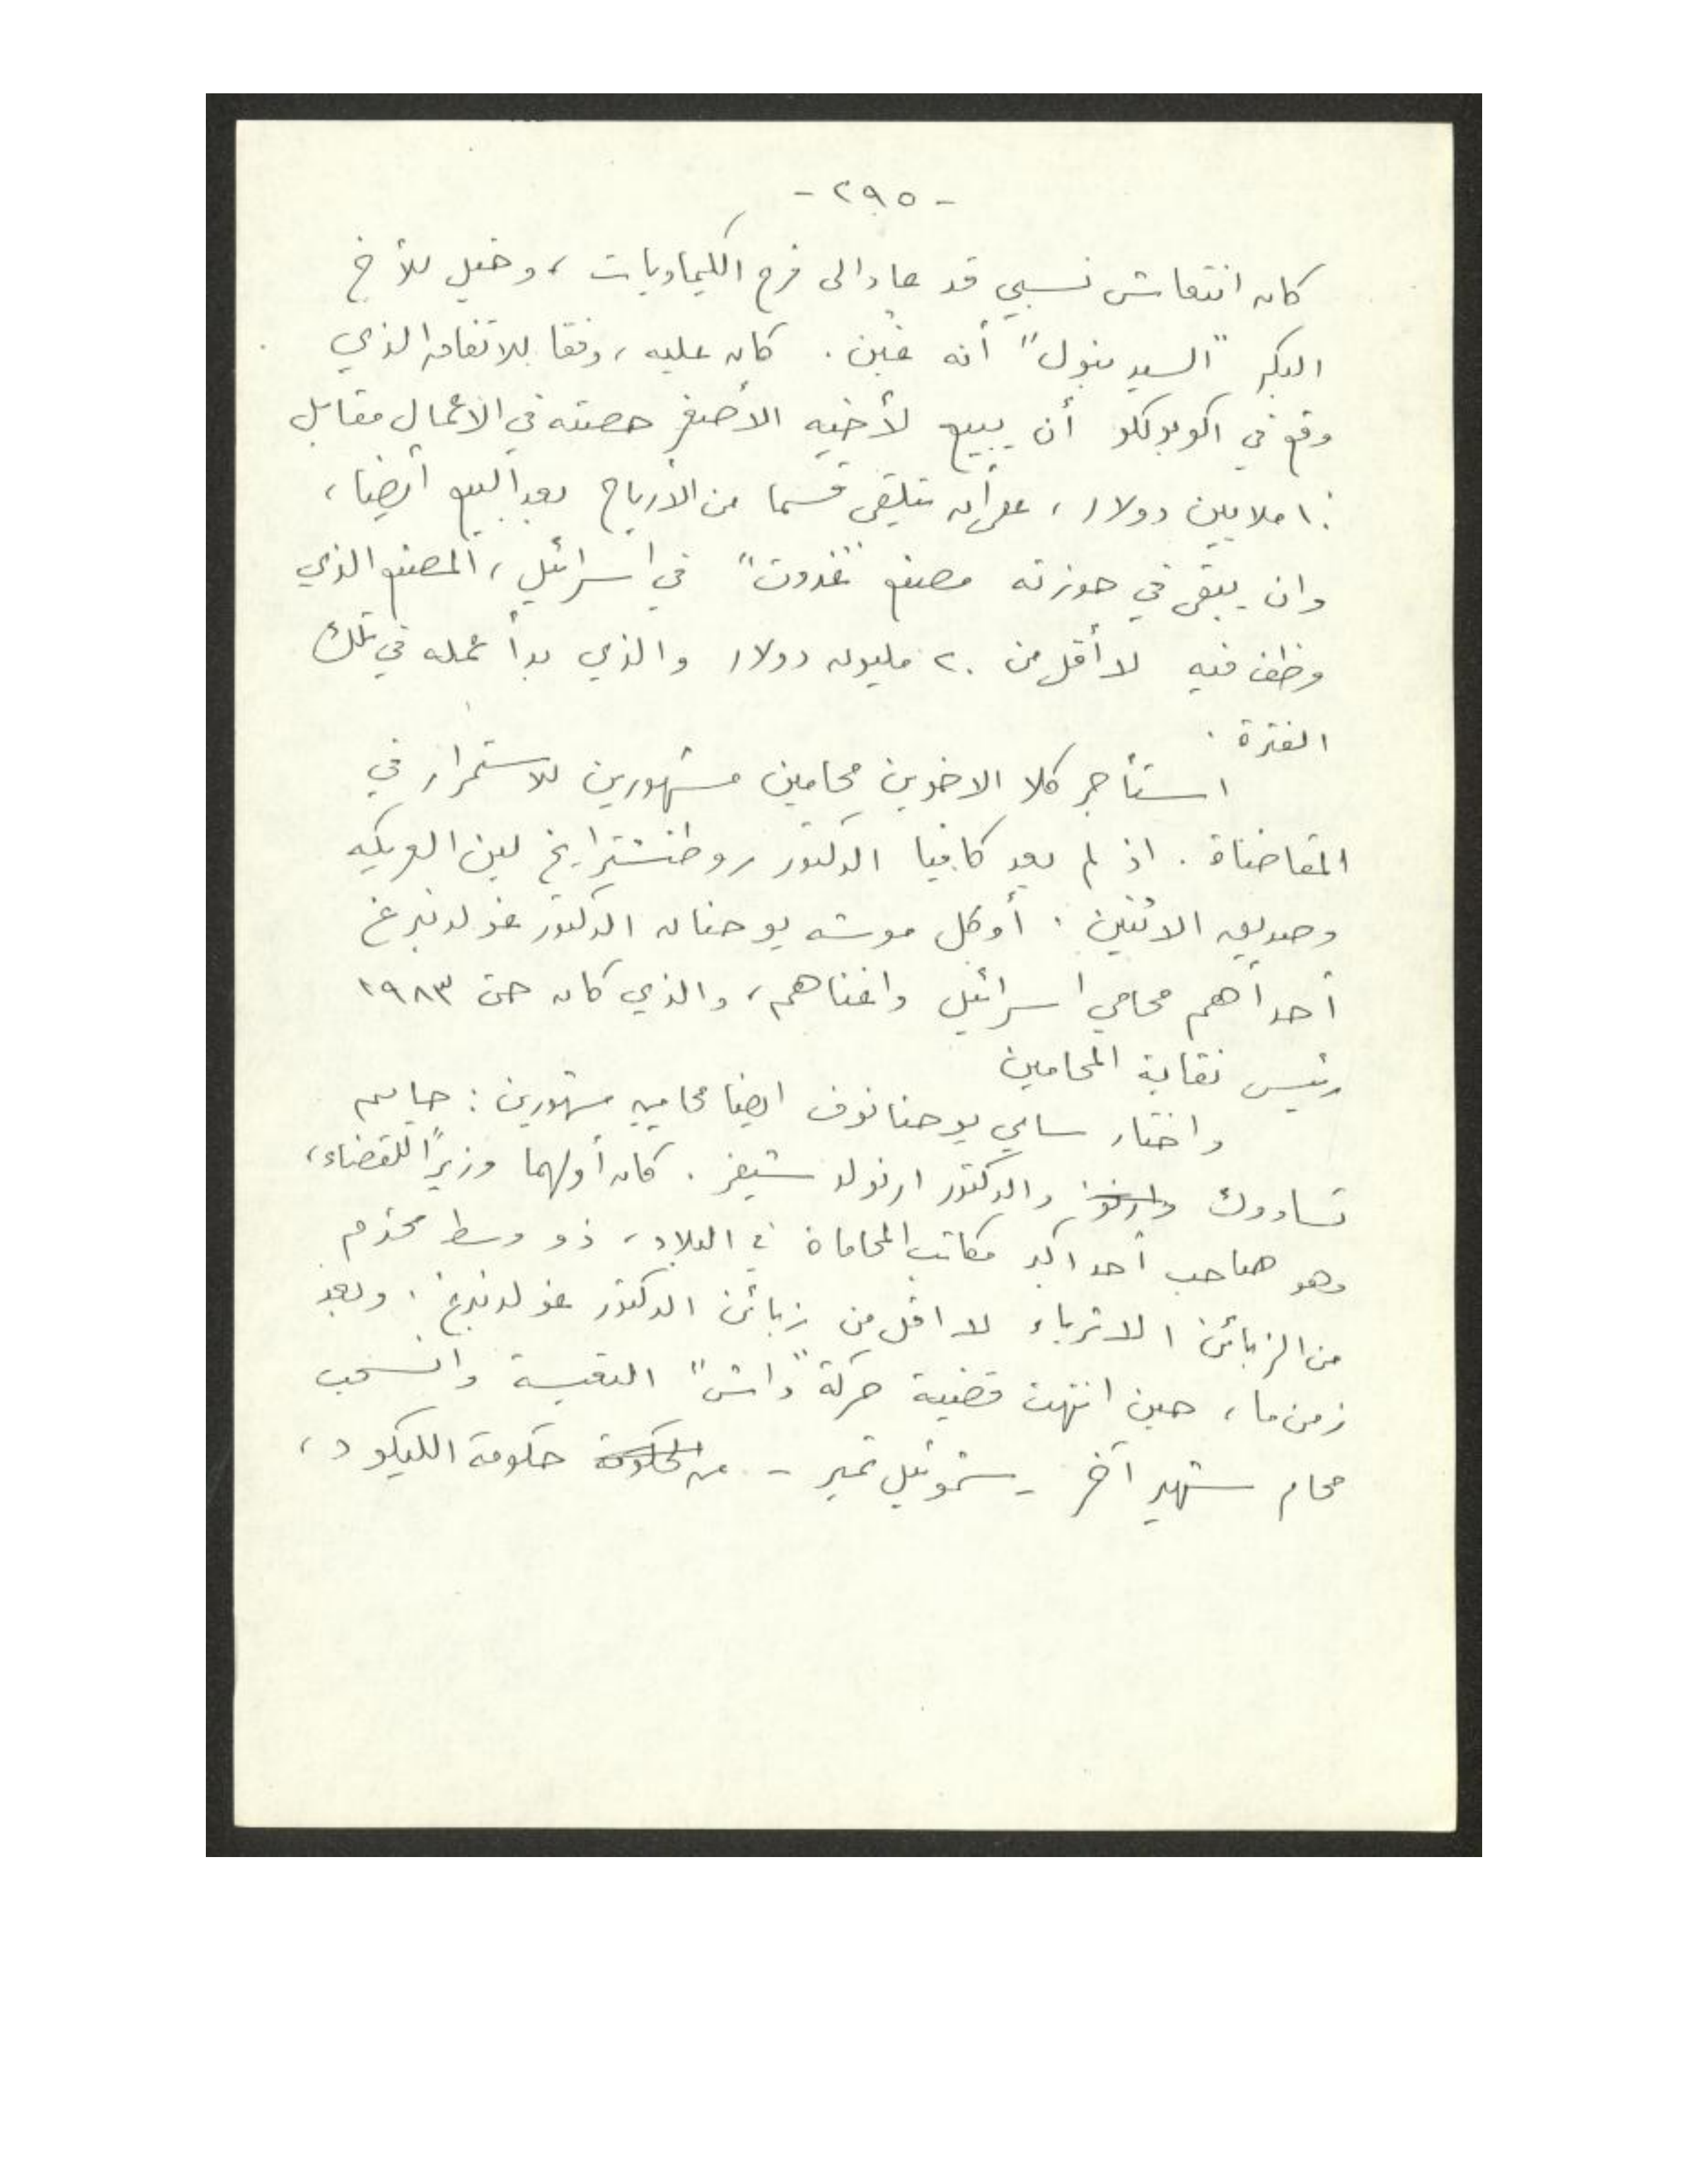 - ٢٩٥ -
كان انتعاش نسبي قد عاد الى فرع الكيماويات ، وخيل للأخ
البكر "السيد بنول" أنه غبن . كان عليه ، وفقا للاتفاق الذي
وقع في اكوبولكو أن يبيع لأخيه الأصغر حصته في الاعمال مقابل
١٠ ملايين دولار ، على أن يتلقى قسما من الأرباح بعد البيع أيضا ،
وان يبقى في حوزته مصنع "غدوت" في اسرائيل ، المصنع الذي
وظف فيه لا أقل من ٢٠ مليون دولار والذي بدأ عمله في تلك
الفترة .
استأجر كلا الاخوين محامين مشهورين للاستمرار في
المقاضاة . اذ لم يعد كافيا الدكتور روطنشترايخ لين العريكه
وصديق الاثنين . أوكل موشه يوحنان الدكتور غولدنبرغ
أحد أهم محامي اسرائيل واغناهم ، والذي كان حتى ١٩٨٣
رئيس نقابة المحامين
واختار سامي يوحنانوف ايضا محاميين مشهورين : حاييم
تسادوك والدكتور ارنولد شيفر . كان أولهما وزيرًا للقضاء ،
وهو صاحب أحد اكبر مكاتب المحاماة في البلاد ، ذو وسط محترم
من الزبائن الاثرياء لا اقل من زبائن الدكتور غولدنبرغ . وبعد
زمن ما ، حين انتهت قضية حركة "داش" التعيسة وانسحب
محام شهير آخر - شموئيل تمير - من حكومة الليكود ،